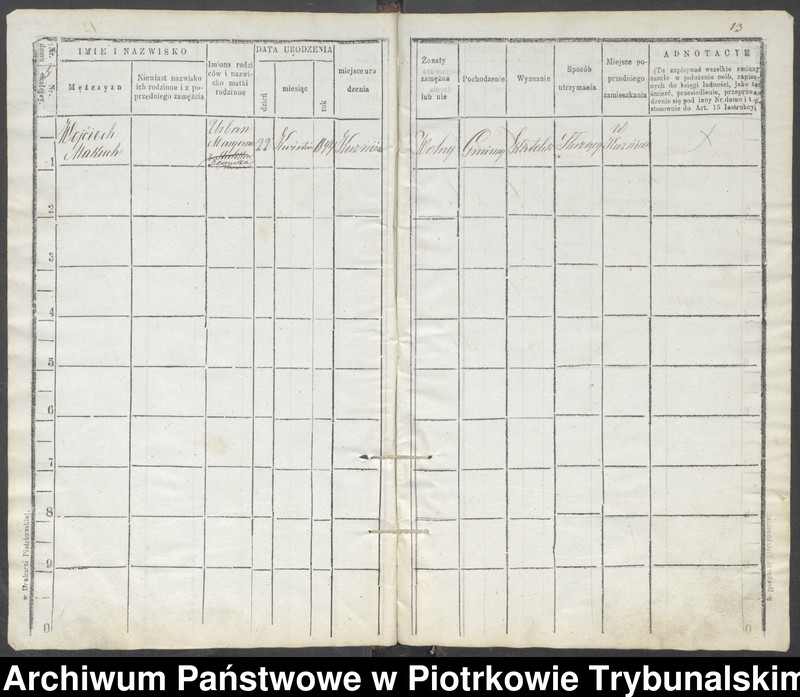 13
Nr. domu
IMIE I NAZWISKO
Mężczyzn
Niewiast nazwisko
ich rodzinne i z po-
przedniego zamęźcia
Imiona rodzi
ców i nazwi-
sko matki
rodzinne
DATA URODZENIA
dzień
miesiąc
rok
miejsce uro
dzenia
Żonaty
zamęźna
lub nie
Pochodzenie
Wyznanie
Sposób
utrzymania
Miejsce po-
przedniego
zamieszkania
ADNOTACYE
(Tu zapisywać wszelkie zmiany
zaszłe w położeniu osób, zapisa-
nych do księgi ludności, jako to
śmierć, przesiedlenie, przeprowa-
dzenie się pod inny Nr. domu i t.p.
stosownie do Art. 15 Instrukcyi)
1
Wojciech
Urban
22
Kwiecień
Wolny
2
3
4
5
6
7
8
9
0
0
w Drukarni Piotrkowskiej.
Archiwum Państwowe w Piotrkowie Trybunalskim